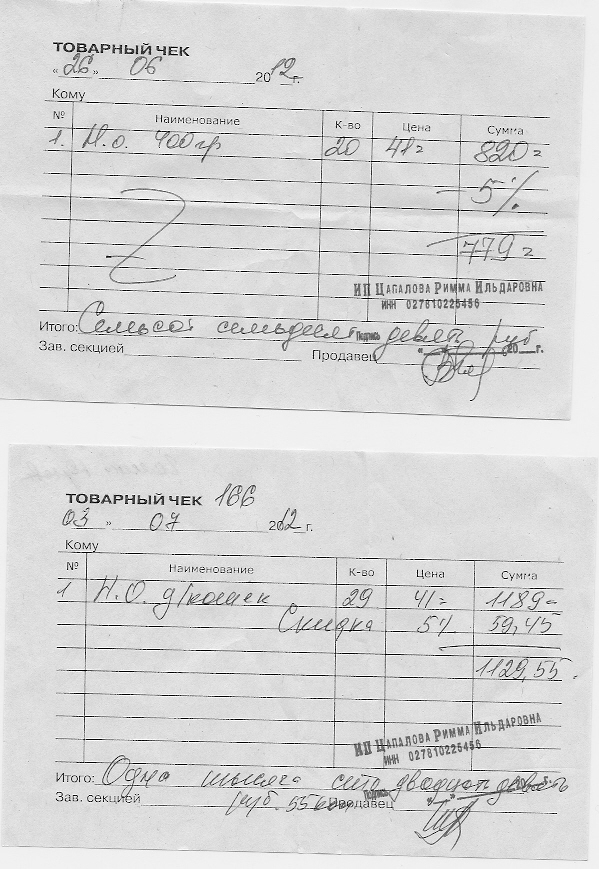 ТОВАРНЫЙ ЧЕК
«26» 06 2012 г.
Кому
№ Наименование К-во Цена Сумма
1. Н.о. 400гр 20 41= 820=
- 5%
779=
ИП ЦАПАЛОВА РИММА ИЛЬДАРОВНА
ИНН 027810225456
Итого: Семьсот семьдесят девять руб
Подпись « » 20 г.
Зав. секцией Продавец
ТОВАРНЫЙ ЧЕК 166
03 » 07 2012 г.
Кому
№ Наименование К-во Цена Сумма
1 Н.О. д/кошек 29 41= 1189=
Скидка 5% 59,45
1129,55.
ИП ЦАПАЛОВА РИММА ИЛЬДАРОВНА
ИНН 027810225456
Итого: Одна тысяча сто двадцать девять
Зав. секцией руб. 55 коп Продавец
Подпись « » 20 г.